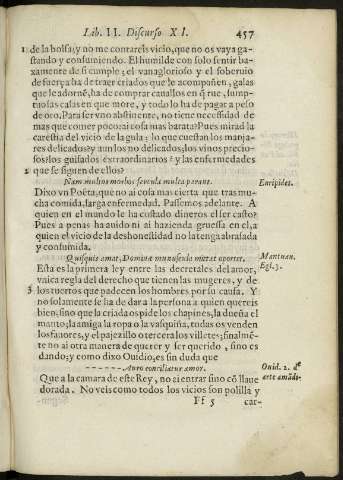 Lib. II. Discurso XI. 457
1 de la bolsa; y no me contareis vicio, que no os vaya ga-
stando y consumiendo. El humilde con solo sentir ba-
xamente de si cumple; el vanaglorioso y el soberuio
de fuerça ha de traer criados que le acompañen, galas
que le adornē, ha de comprar cauallos en q̄ rue, sump-
tuosas casas en que more, y todo lo ha de pagar a peso
de oro. Para ser vno abstinente, no tiene necessidad de
mas que comer poco; ai cosa mas barata? Pues mirad la
carestia del vicio de la gula: lo que cuestan los manja-
res delicados? y aun los no delicados; los vinos precio-
sos? los guisados extraordinarios? y las enfermedades
2 que se siguen de ellos?
Nam multos morbos fercula multa parant. Euripides.
Dixo vn Poëta, que no ai cosa mas cierta que tras mu-
cha comida, larga enfermedad. Passemos adelante. A
quien en el mundo le ha costado dineros el ser casto?
Pues a penas ha auido ni ai hazienda gruessa en el, a
quien el vicio de la deshonestidad no la tenga abrasada
y consumida.
Quisquis amat, Dominæ munusculo mittat oportet. Mantuan.
Egl. 3.
Esta es la primera ley entre las decretales del amor,
vnica regla del derecho que tienen las mugeres, y de
3 los tuertos que padecen los hombres por su causa. Y
no solamente se ha de dar a la persona a quien quereis
bien; sino que la criada os pide los chapines, la dueña el
manto; la amiga la ropa o la vasquiña, todas os venden
los fauores, y el pajezillo o tercera los villetes; finalmē-
te no ai otra manera de querer y ser querido, sino es
dando; y como dixo Ouidio, es sin duda que
------ Auro conciliatur amor. Ouid. 2. de
arte amādi.
Que a la camara de este Rey, no ai entrar sino cō llaue
dorada. No veis como todos los vicios son polilla y
Ff 5 car-